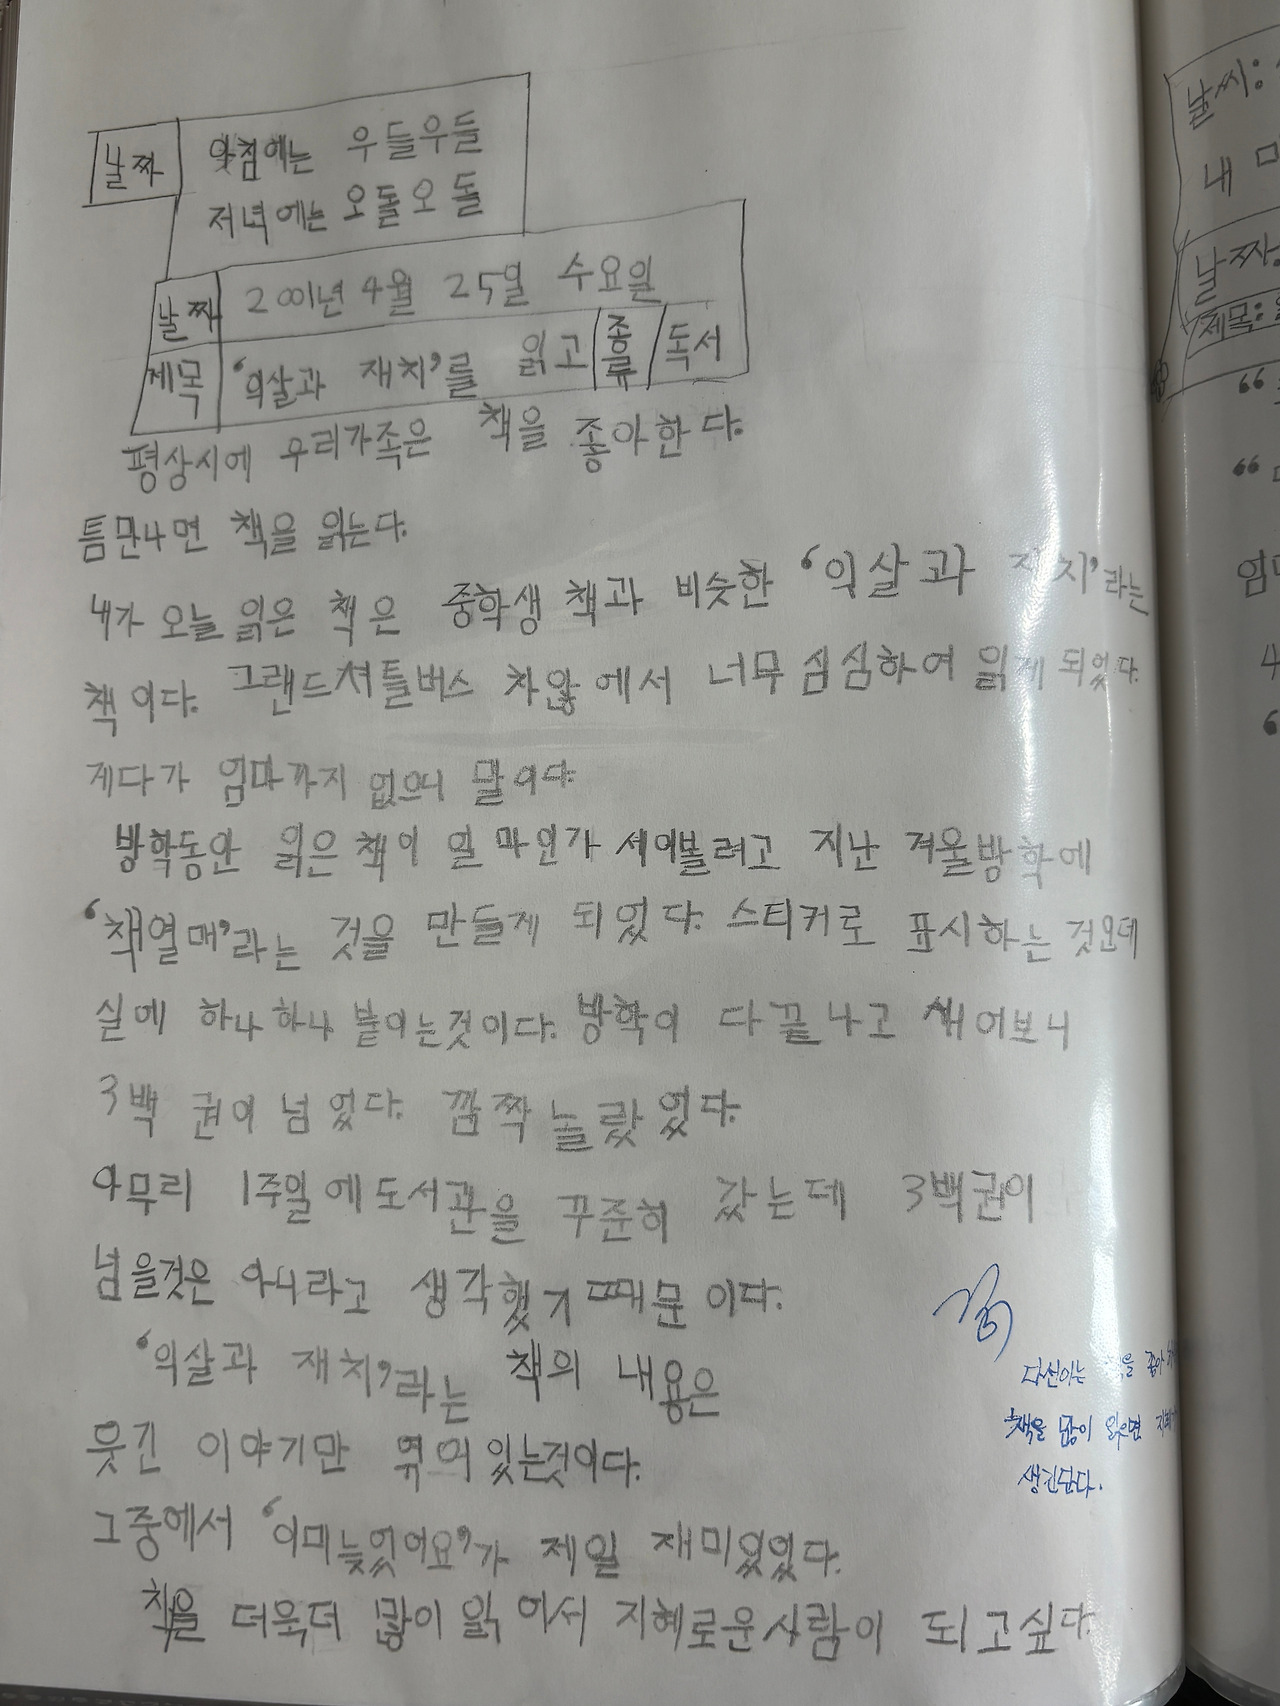 날짜 아침에는 우들우들
저녁에는 오돌오돌
날짜 2001년 4월 25일 수요일
제목 '익살과 재치'를 읽고 종류 독서
평상시에 우리가족은 책을 좋아한다.
틈만나면 책을 읽는다.
내가 오늘 읽은 책은 중학생 책과 비슷한 '익살과 재치'라는
책이다. 그랜드셔틀버스 차않에서 너무 심심하여 읽게 되었다.
게다가 엄마까지 없으니 말이다.
방학동안 읽은 책이 얼마인가 세어볼려고 지난 겨울방학에
'책열매'라는 것을 만들게 되었다. 스티커로 표시하는 것인데
실에 하나하나 붙이는것이다. 방학이 다 끝나고 새어보니
3백 권이 넘었다. 깜짝 놀랐었다.
아무리 1주일에 도서관을 꾸준히 갔는데 3백권이
넘을것은 아니라고 생각했기 때문이다.
'익살과 재치'라는 책의 내용은
웃긴 이야기만 엮어있는것이다.
그중에서 '이미늦었어요'가 제일 재미있었다.
책을 더욱더 많이 읽어서 지혜로운사람이 되고싶다.
다선이는 책을 좋아
책을 많이 읽으면 지혜가
생긴단다.
날씨:
내
날짜:
제목: